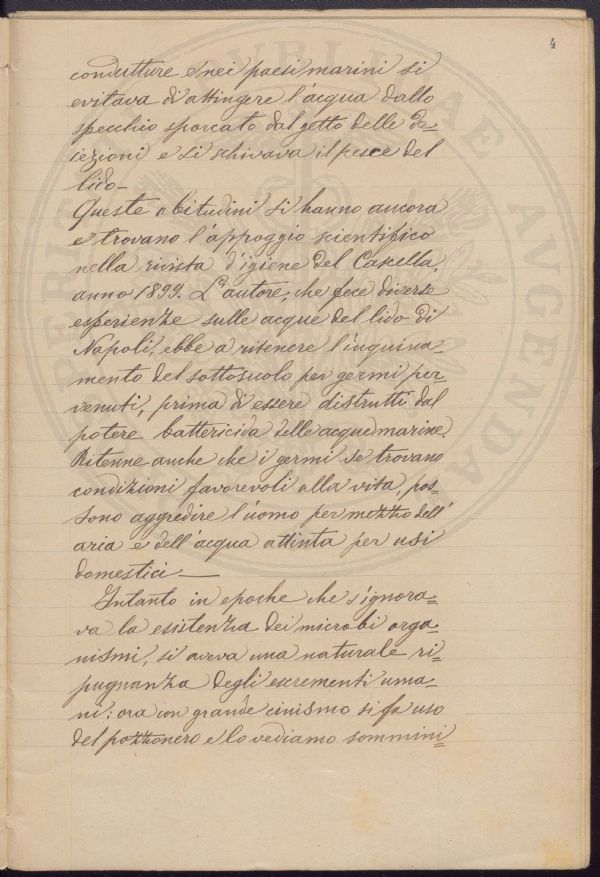 4
condutture e nei paesi marini si
evitava di attingere l'acqua dallo
specchio sporcato dal getto delle de=
iezioni e si schivava il pesce del
lido-
Queste abitudini si hanno ancora
e trovano l'appoggio scientifico
nella rivista d'igiene del Casella,
anno 1899. L'autore, che fece diverse
esperienze sulle acque del lido di
Napoli, ebbe a ritenere l'inquina=
mento del sottosuolo per germi per=
venuti, prima d'essere distrutti dal
potere battericida delle acque marine.
Ritenne anche che i germi se trovano
condizioni favorevoli alla vita, pos=
sono aggredire l'uomo per mezzo dell'
aria e dell'acqua attinta per usi
domestici —
Intanto in epoche che s'ignora=
va la esistenza dei microbi orga=
nismi, si aveva una naturale ri=
pugnanza degli escrementi uma=
ni: ora con grande cinismo si fa uso
del pozzonero e lo vediamo sommini=